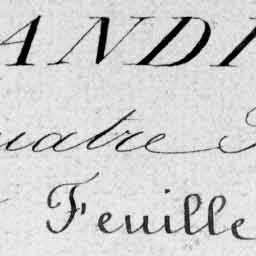 ANDI
uatre
Feuille